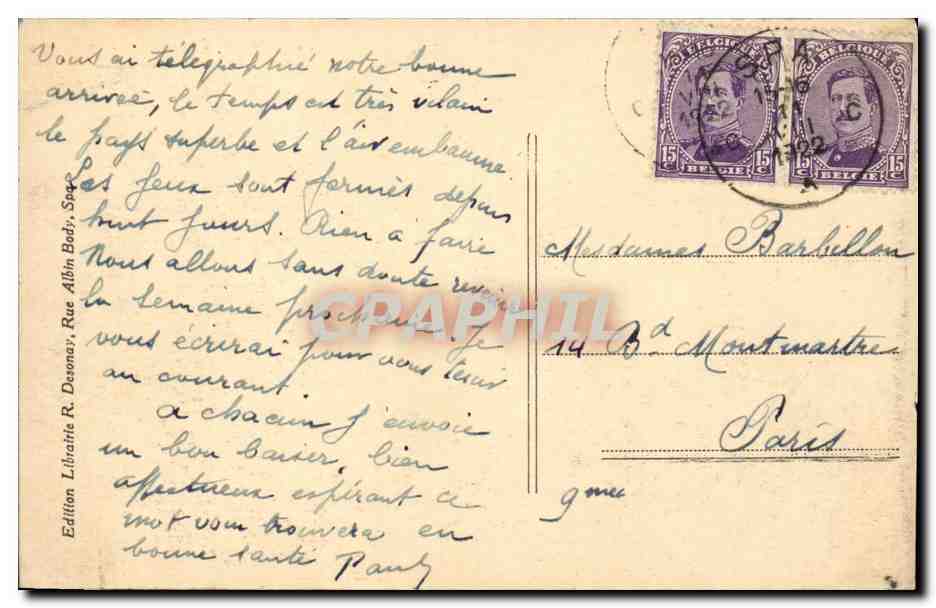 Vous ai télégraphié notre bonne
arrivée, le temps est très vilain
le pays superbe et l'air embaumé
Les Jeux sont fermés depuis
huit jours. Rien à faire
Nous allons sans doute revenir
la semaine prochaine. Je
vous écrirai pour vous tenir
au courant
a chacun j'envoie
un bon baiser, bien
affectueux espérant ce
mot vous trouvera en
bonne santé Paul
Edition Librairie R. Desonay, Rue Albin Body, Spa
BELGIQUE
15 C 15 C
BELGIE
BELGIQUE
15 C 15 C
BELGIE
SPA
1922
C
Mesdames Barbillon
14 Bd Montmartre
Paris
9mee
CPAPHIL